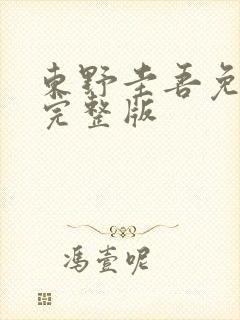 東野圭吾免
完整版
馮壹呢